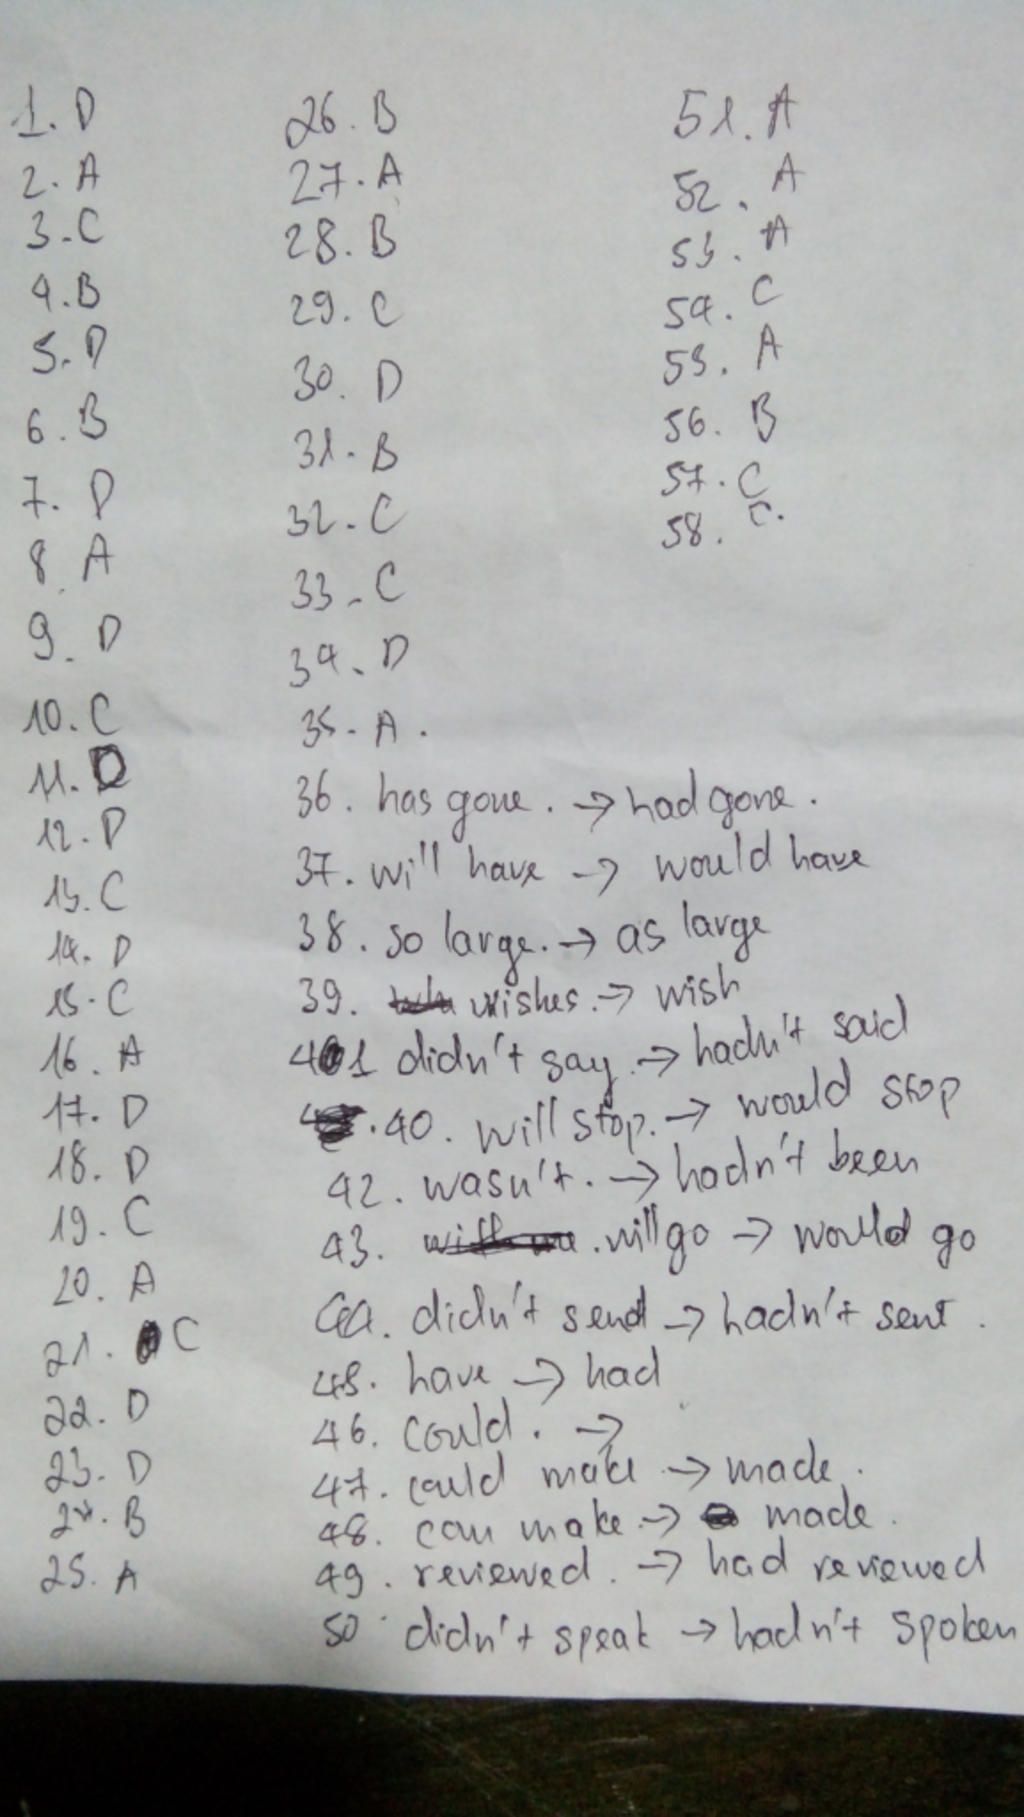 1. D
2. A
3. C
4. B
5. D
6. B
7. D
8. A
9. D
10. C
11. D
12. D
13. C
14. D
15. C
16. A
17. D
18. D
19. C
20. A
21. C
22. D
23. D
24. B
25. A
26. B
27. A
28. B
29. C
30. D
31. B
32. C
33. C
34. D
35. A.
36. has gone. → had gone.
37. will have → would have
38. so large. → as large
39. wishes. → wish
41 didn't say. → hadn't said
40. will stop. → would stop
42. wasn't. → hadn't been
43. will go → would go
44. didn't send → hadn't sent.
45. have → had
46. could. →
47. could make → made.
48. can make. → made.
49. reviewed. → had reviewed
50 didn't speak → hadn't spoken
51. A
52. A
53. A
54. C
55. A
56. B
57. C
58. C.